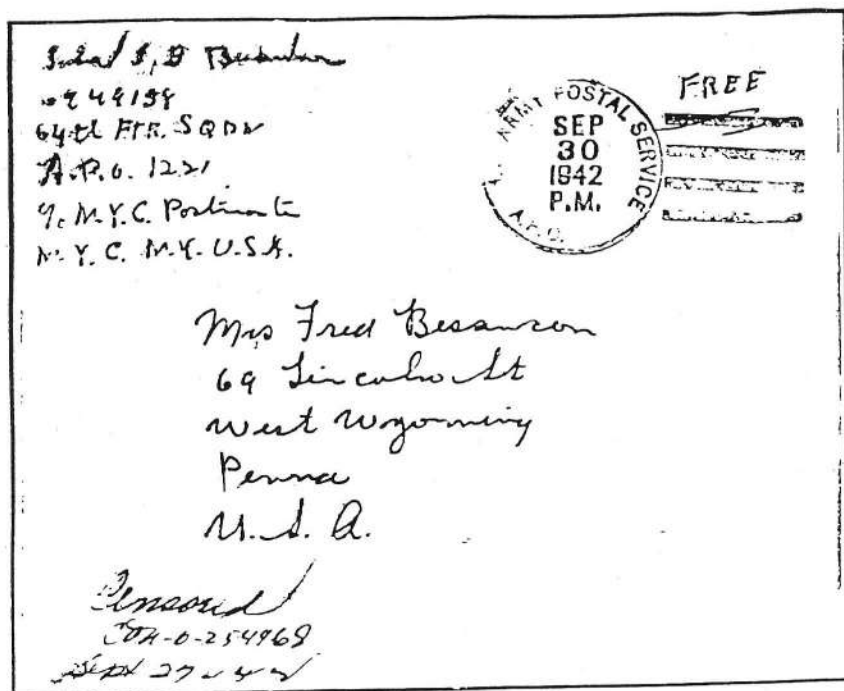 64th FTR. SQDN
A.P.O. 1221
℅ N.Y.C. Postmaster
N.Y.C. N.Y. U.S.A.
ARMY POSTAL SERVICE
SEP
30
1942
P.M.
A.P.O.
FREE
Mrs Fred Besancon
69 Lincoln St
West Wyoming
Penna
U.S.A.
Censored
O-254968
Sept 27